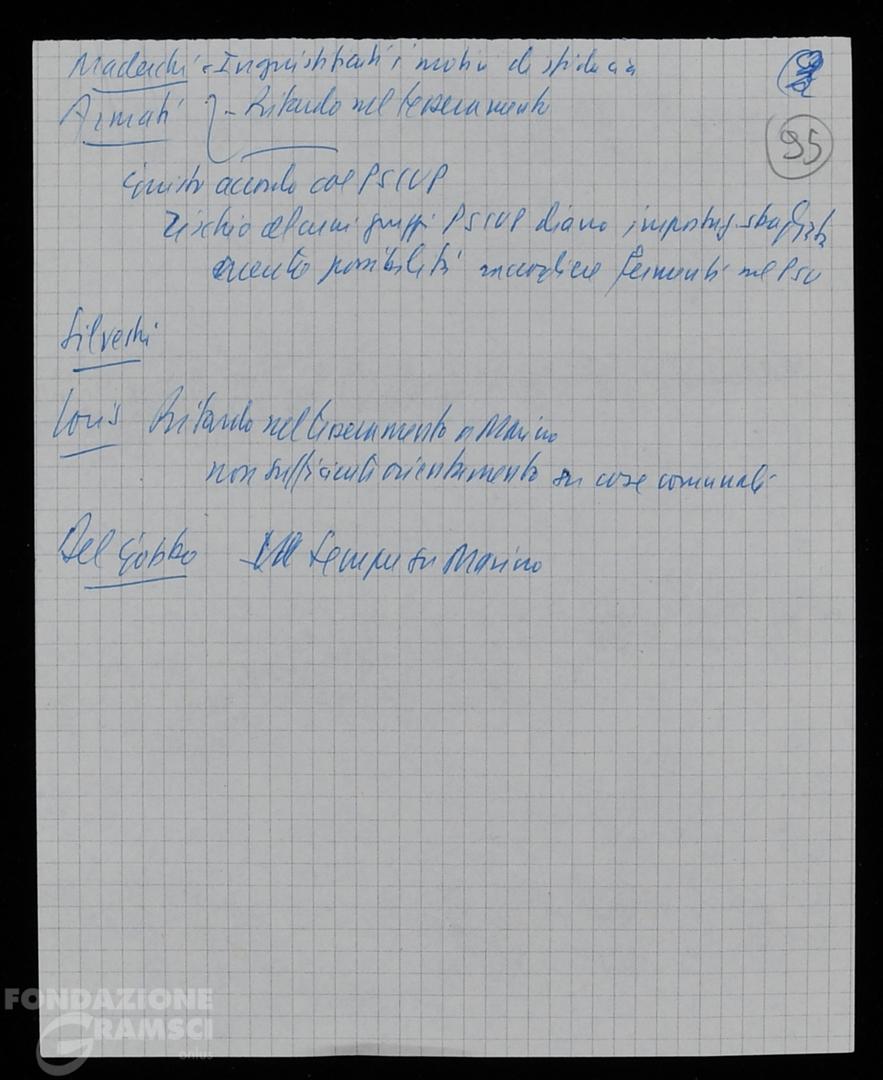 Maderchi - Ingiustificati i motivi di sfiducia
Armati - Ritardo nel tesseramento
Giusto accordo col PSIUP
Rischio alcuni gruppi PSIUP diano impostaz. sbagliata
possibilità raccogliere fermenti nel PSU
Silvestri
Loris Ritardo nel tesseramento a Marino
non sufficienti orientamento su cose comunali
Del Gobbo Sempre su Marino
95
FONDAZIONE
GRAMSCI
onlus